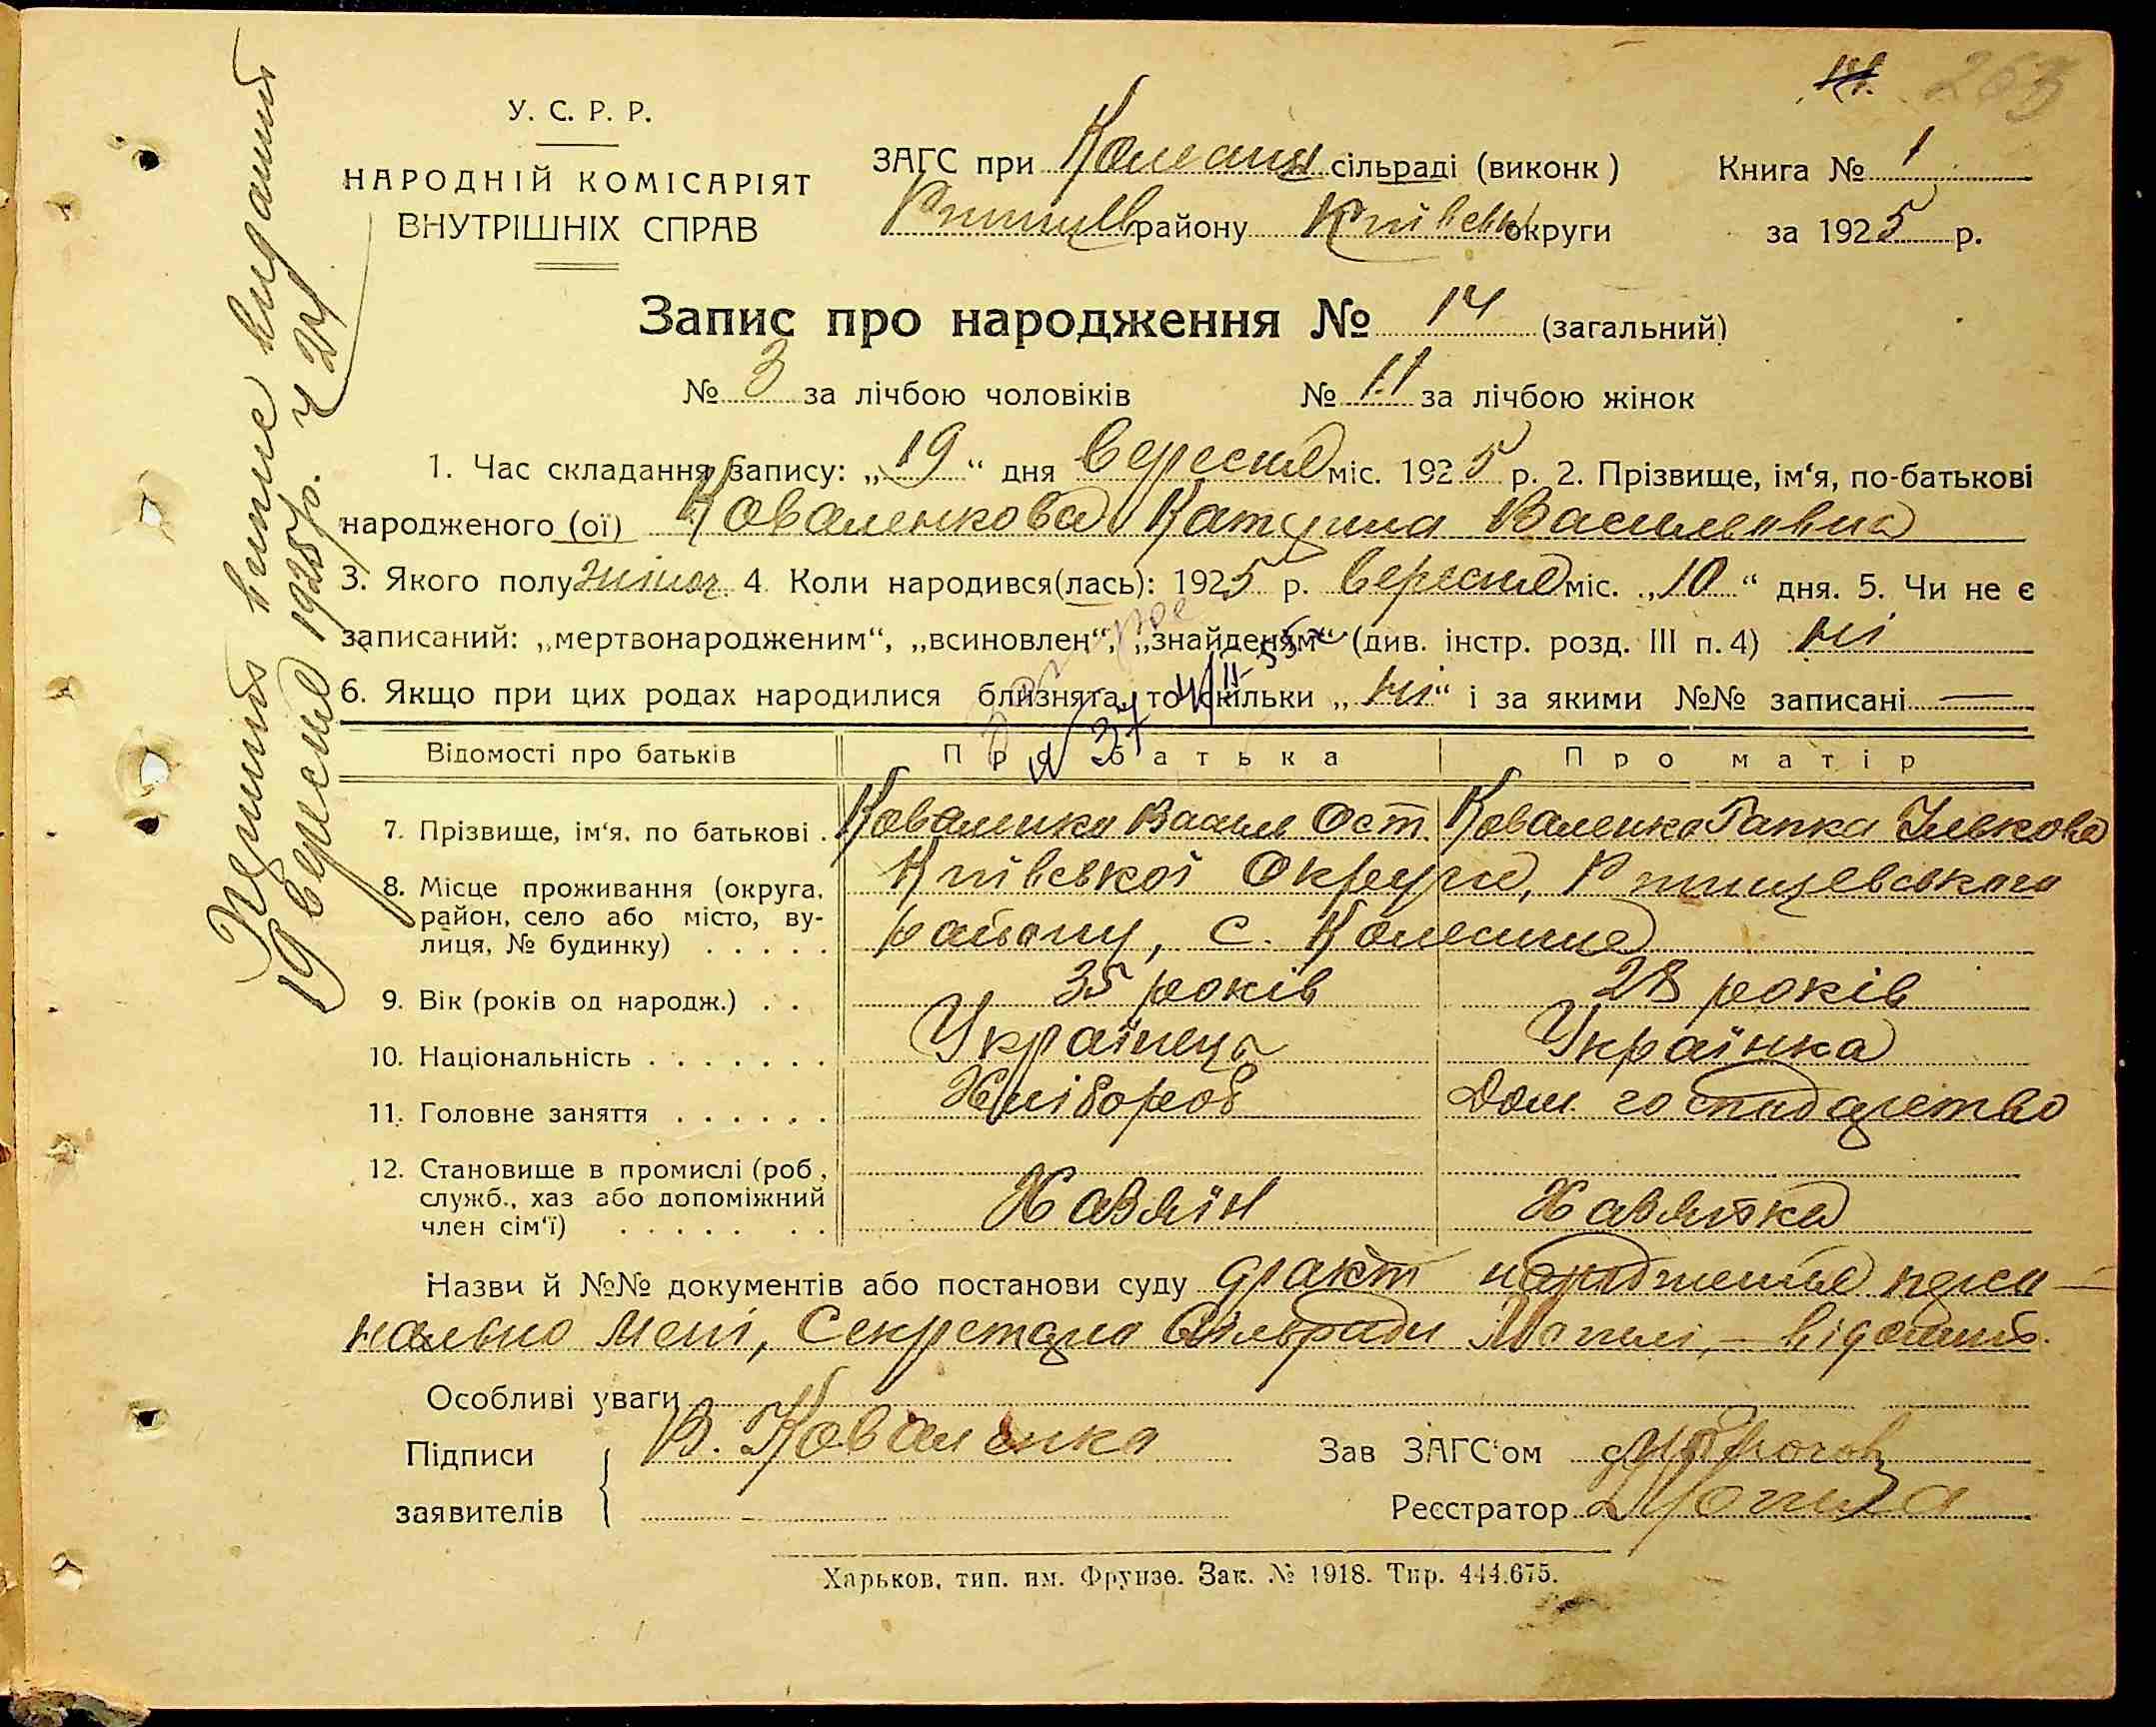 263
У. С. Р. Р.
НАРОДНІЙ КОМІСАРІЯТ
ВНУТРІШНІХ СПРАВ
ЗАГС при сільраді (виконк) Книга № 1
району Київськ округи за 1925 р.
Запис про народження № 14 (загальний)
№ 3 за лічбою чоловіків № 11 за лічбою жінок
1. Час складання запису: „19“ дня вересня міс. 1925 р. 2. Прізвище, ім‘я, по-батькові
народженого (ої) Коваленкова Катерина Василівна
3. Якого полу жіноч. 4. Коли народився(лась): 1925 р. вересня міс. „10“ дня. 5. Чи не є
записаний: „мертвонародженим“, „всиновлен“, „знайденям“ (див. інстр. розд. III п. 4) ні
6. Якщо при цих родах народилися близнята, то скільки „ні“ і за якими №№ записані —
Відомості про батьків Про батька Про матір
7. Прізвище, ім‘я, по батькові . Коваленко Василь Ост. Коваленко Гапка
8. Місце проживання (округа, район, село або місто, вулиця, № будинку) . . . . . Київської Округи,
району, с.
9. Вік (років од народж.) . . 35 років 28 років
10. Національність . . . . . . . Українець Українка
11. Головне заняття . . . . . . Хлібороб Дом. господарство
12. Становище в промислі (роб.,
служб., хаз або допоміжний
член сім‘ї) . . . . . . . Хазяїн Хазяйка
Назви й №№ документів або постанови суду факт народження персо-
нально мені, Секретарю Сільради відомий.
Особливі уваги
Підписи В. Коваленко Зав ЗАГС‘ом
заявителів Реєстратор
Харьков, тип. им. Фрунзе. Зак. № 1918. Тир. 444.675.
витис виданий
19 вересня 1925 р. ч 24